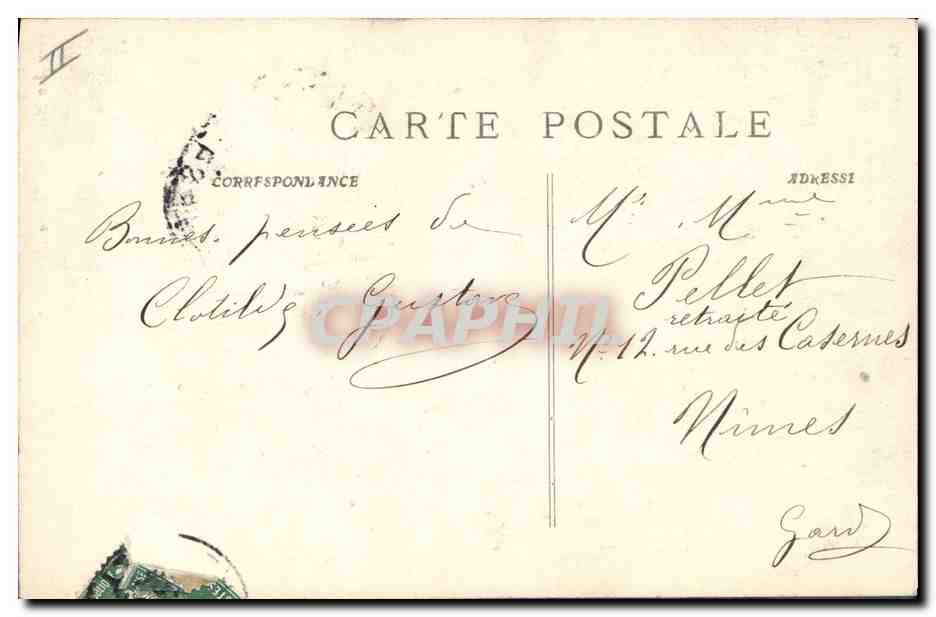 II
CARTE POSTALE
CORRESPONDANCE
ADRESSE
Bonnes pensées de
Clotilde Gustave
Mr Mme
Pellet
retraité
No 12. rue des Casernes
Nîmes
Gard
CPAPHIL